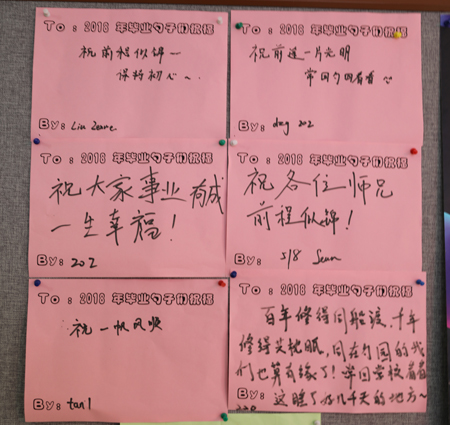 To: 2018 年毕业勺子们祝福
祝前程似锦一
保持初心~.
By: Liu
To: 2018 年毕业勺子们祝福
祝前途一片光明
常回勺园看看
By: 202
To: 2018 年毕业勺子们祝福
祝大家事业有成
一生幸福!
By: 202
To: 2018 年毕业勺子们祝福
祝各位师兄
前程似锦!
By: 518 Sean
To: 2018 年毕业勺子们祝福
祝一帆风顺
By: tan1
To: 2018 年毕业勺子们祝福
百年修得同船渡,十年
修得共枕眠,同在勺园的我
们也算有缘了!常回学校看看
By: 这睡了好几千天的地方~